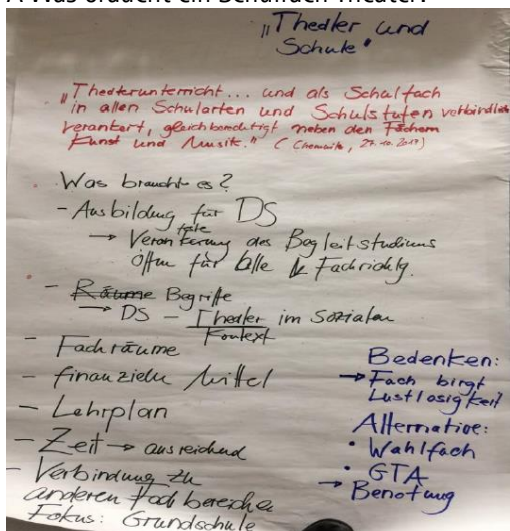 A Was braucht ein Schulfach Theater?
"Theater und
Schule"
"Theaterunterricht... und als Schulfach
in allen Schularten und Schulstufen verbindlich
verankert, gleichberechtigt neben den Fächern
Kunst und Musik." (Chemnitz, 27.10.2017)
Was braucht es?
- Ausbildung für DS
→ Verankerung des Begleitstudiums
Öffn für alle Fachrichtg.
- Räume Begriffe
→ DS - Theater im Sozialen
Kontext
- Fachräume
- finanzielle Mittel
- Lehrplan
- Zeit → ausreichend
- Verbindung zu
anderen Fachbereichen
Fokus: Grundschule
Bedenken:
→ Fach birgt
Lustlosigkeit
Alternative:
• Wahlfach
• GTA
→ Benotung